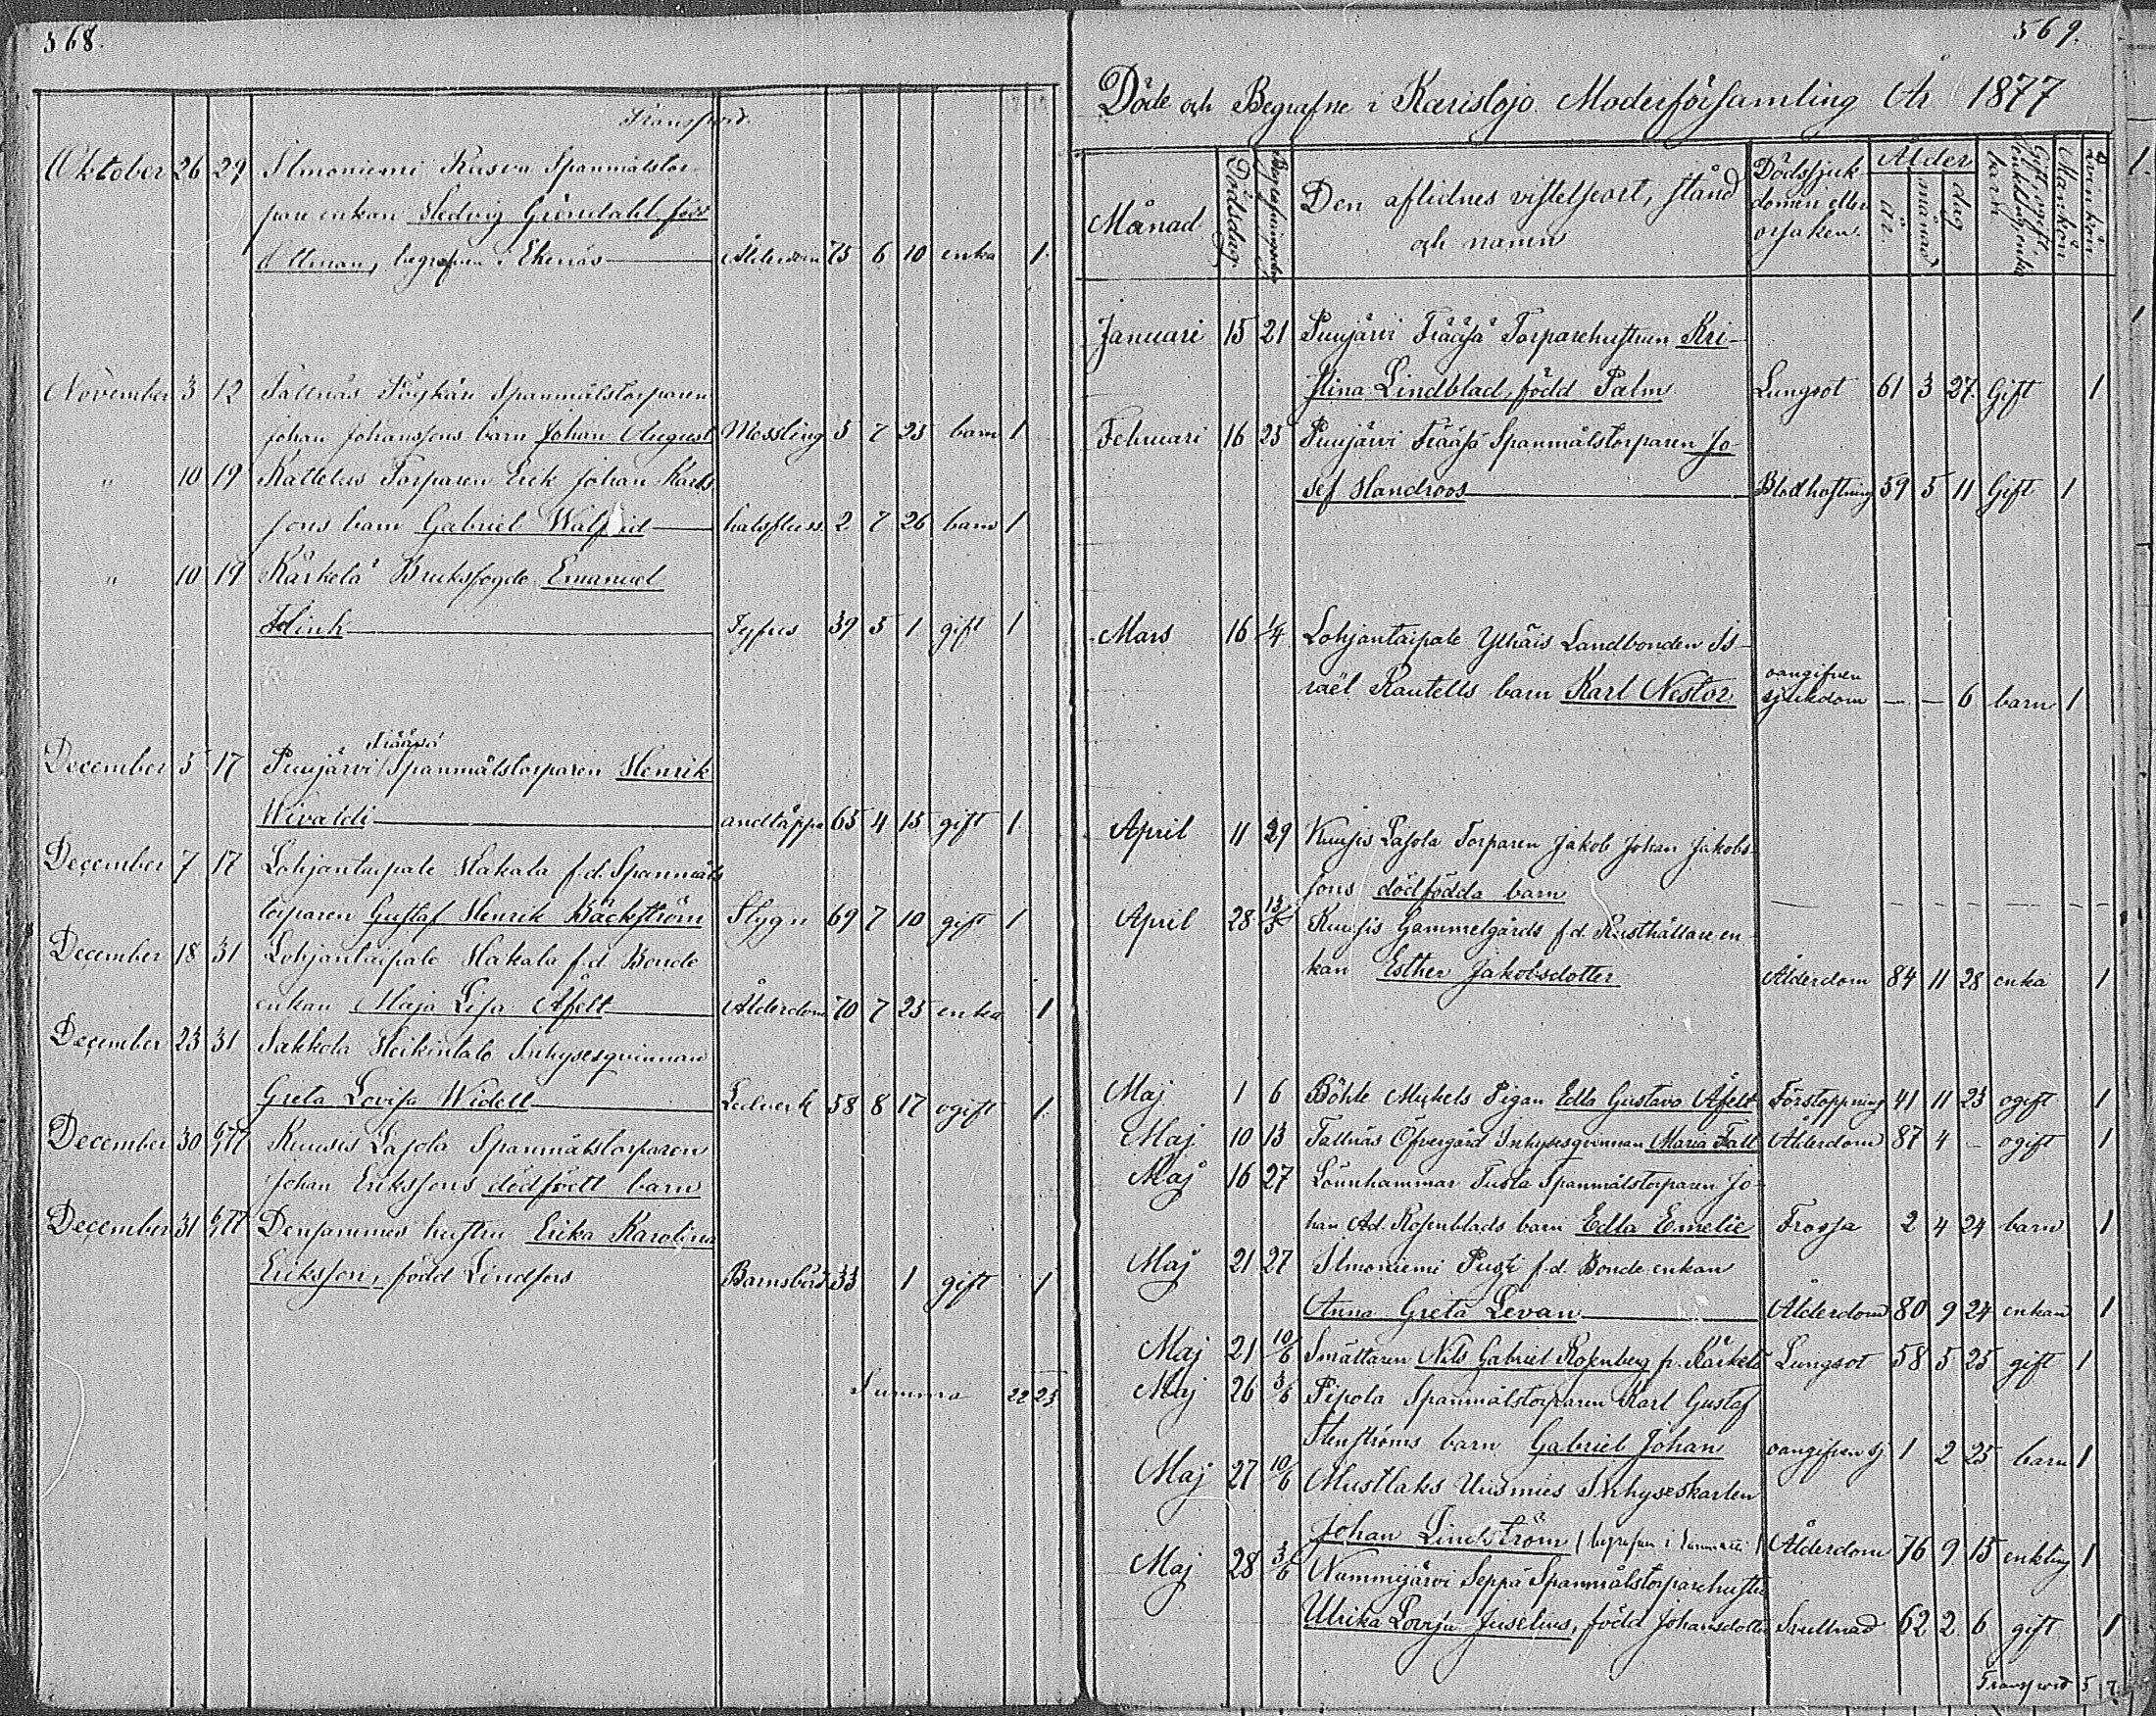 568.
Transport.
Oktober 26 29 Ilmoniemi Rusva Spanmålstor-
pare enkan Hedvig Gröndahl född
Öttman, begrafven i Ekenäs Ålderdom 75 6 10 enka 1
November 3 12 Tallnäs Spanmålstorparen
Johan Johanssons barn Johan August Messling 5 7 23 barn 1
" 10 19 Kattelus Torparen Erik Johan Karls
sons barn Gabriel Walfrid halsfluss. 2 7 26 barn 1
" 10 19 Kärkelä Bruksfogde Emanuel
Flink Tyfus 39 5 1 gift 1
Träässä
December 5 17 Puujärvi Spanmålstorparen Henrik
Wivaldi andtäppa 65 4 15 gift 1
December 7 17 Lohjantaipale Hakala f.d. Spanmåls
torparen Gustaf Henrik Bäckström Stygn 69 7 10 gift 1
December 18 31 Lohjantaipale Hakala f.d. Bonde
enkan Maja Lisa Åfelt Ålderdom 70 7 25 enka 1
December 23 31 Sakkola Heikintalo Inhysesqvinnan
Greta Lovisa Widell Ledverk 58 8 17 ogift 1
December 30 Kuusis Lasola Spanmålstorparen
Johan Erikssons dödfödt barn
December 31 Densammes hustru Erika Karolina
Eriksson, född Lindfors Barnsbörd 33 1 gift 1
Summa 22 23
569.
Döde och Begrafne i Karislojo Moderförsamling År 1877
Månad Dödsdag Begrafningsdag Den aflidnes vistelseort, stånd och namn Dödssjuk-domen eller orsaken. Ålder år. månad dag Gift, ogift, enkling, enka barn Mankön Qvinkön
Januari 15 21 Puujärvi Träässä Torparehustrun Kri-
stina Lindblad, född Palm Lungsot 61 3 27 Gift 1
Februari 16 25 Puujärvi Träässä Spanmålstorparen Jo-
sef Handroos Blodhostning 59 5 11 Gift 1
Mars 16 1/4 Lohjantaipale Yltäis Landbonden Is-
raël Rautells barn Karl Nestor oangifven sjukdom — — 6 barn 1
April 11 29 Kuusis Lasola Torparen Jakob Johan Jakobs-
sons dödfödda barn — — — — — —
April 28 13/5 Kuusis Gammelgårds f.d. Rusthållare en-
kan Esther Jakobsdotter Ålderdom 84 11 28 enka 1
Maj 1 6 Böhle Mickels Pigan Edla Gustava Åfelt Förstoppning 41 11 23 ogift 1
Maj 10 13 Tallnäs Öfvergård Inhysesqvinnan Maria Tall Ålderdom 87 4 - ogift 1
Maj 16 27 Lönnhammar Tuola Spanmålstorparen Jo-
han Ad. Rosenblads barn Edla Emelie Frossa 2 4 24 barn 1
Maj 21 27 Ilmoniemi Pusi f.d. Bonde enkan
Anna Greta Levan Ålderdom 80 9 24 enkan 1
Maj 21 10/6 Smältaren Nils Gabriel Rosenberg fr. Kärkelä Lungsot 58 5 25 gift 1
Maj 26 3/6 Pipola Spanmålstorparen Karl Gustaf
Stenströms barn Gabriel Johan oangifven sj 1 2 25 barn 1
Maj 27 10/6 Mustlaks Uusmies Inhyseskarlen
Johan Lindström (begrafven i Sammatti) Ålderdom 76 9 15 enkling 1
Maj 28 3/6 Nummijärvi Seppä Spanmålstorparehustru
Ulrika Lovisa Juselius, född Johansdotter Svullnad 62 2 6 gift 1
Transport 5 7